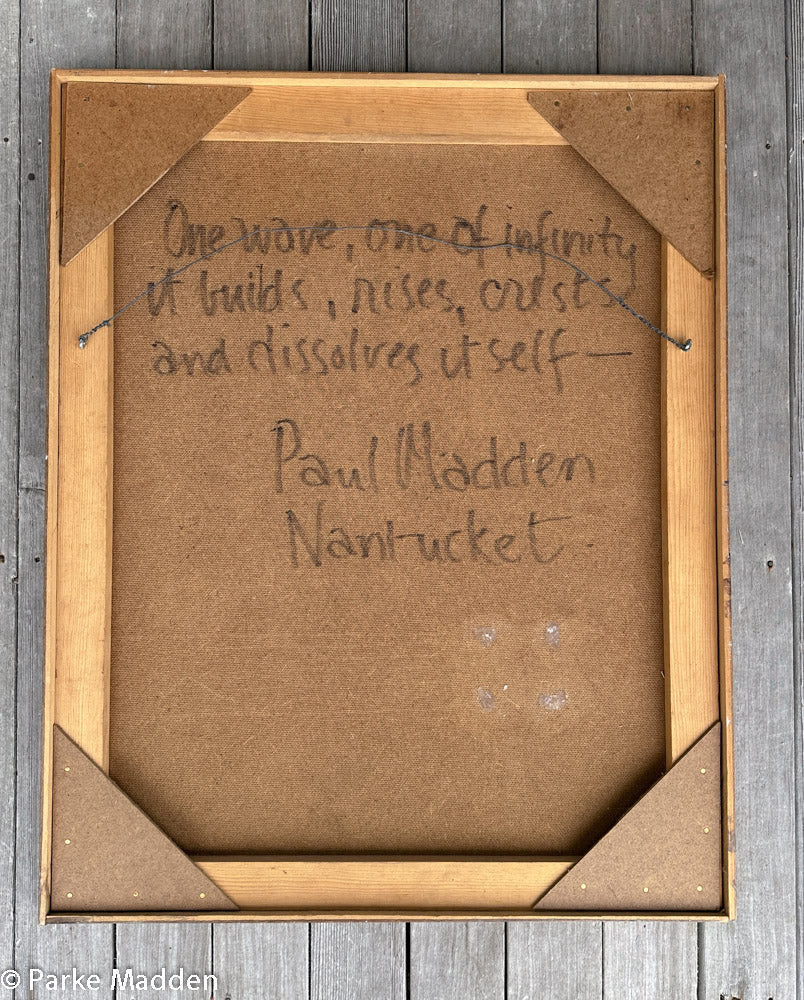 One wave, one of infinity
it builds, rises, crests
and dissolves itself —
Paul Madden
Nantucket -
© Parke Madden